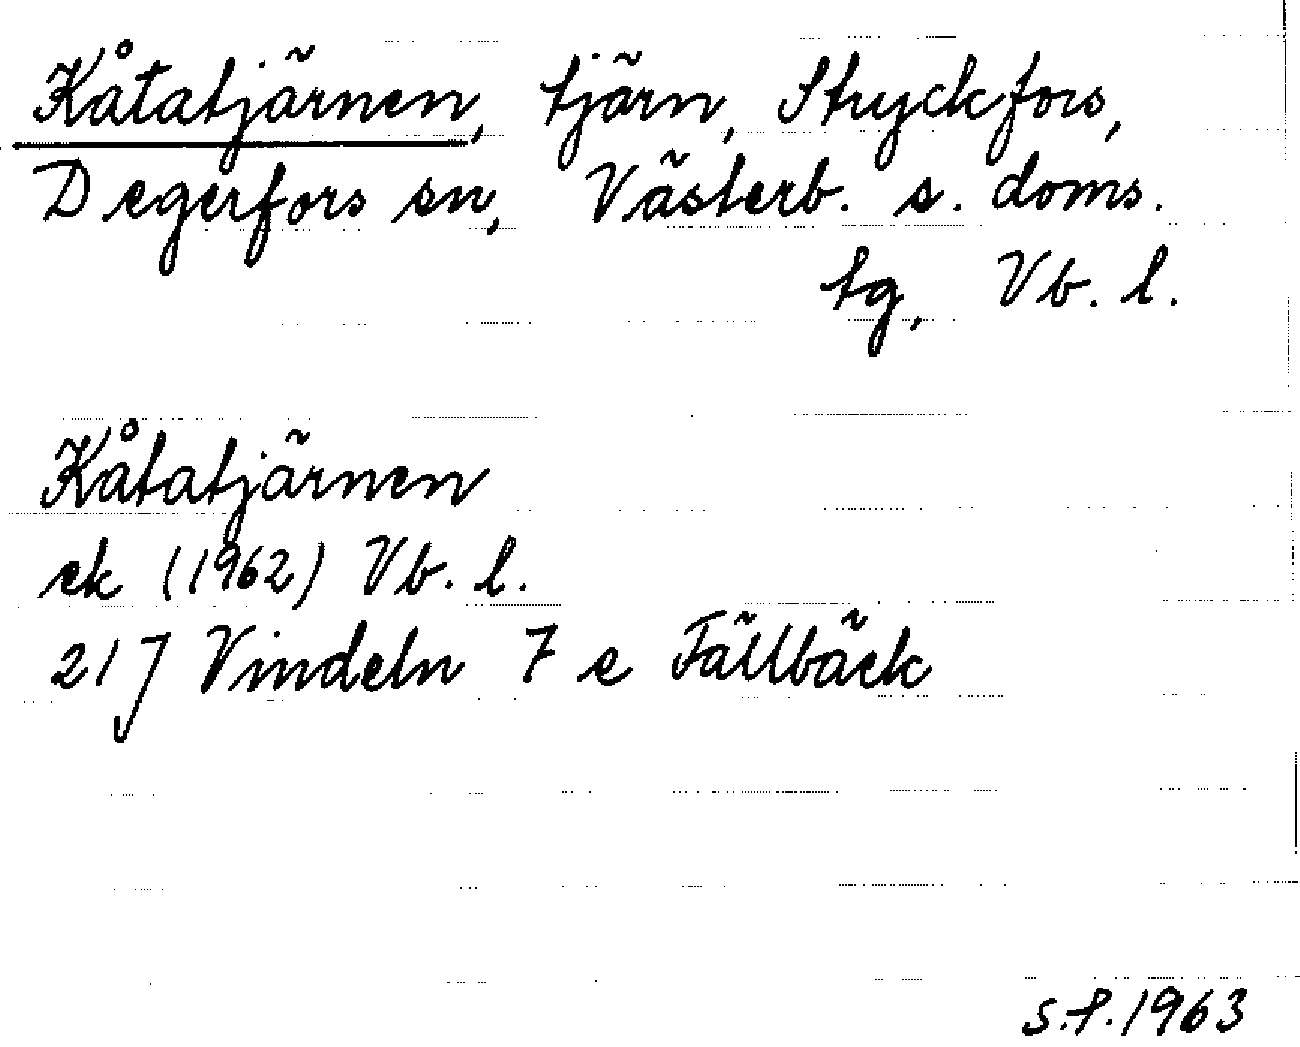 Kåtatjärnen, tjärn, Stryckfors,
Degerfors sn, Västerb. s. doms.
tg, Vb. l.
Kåtatjärnen
ek (1962) Vb. l.
21J Vindeln 7 e Fällbäck
S.P. 1963